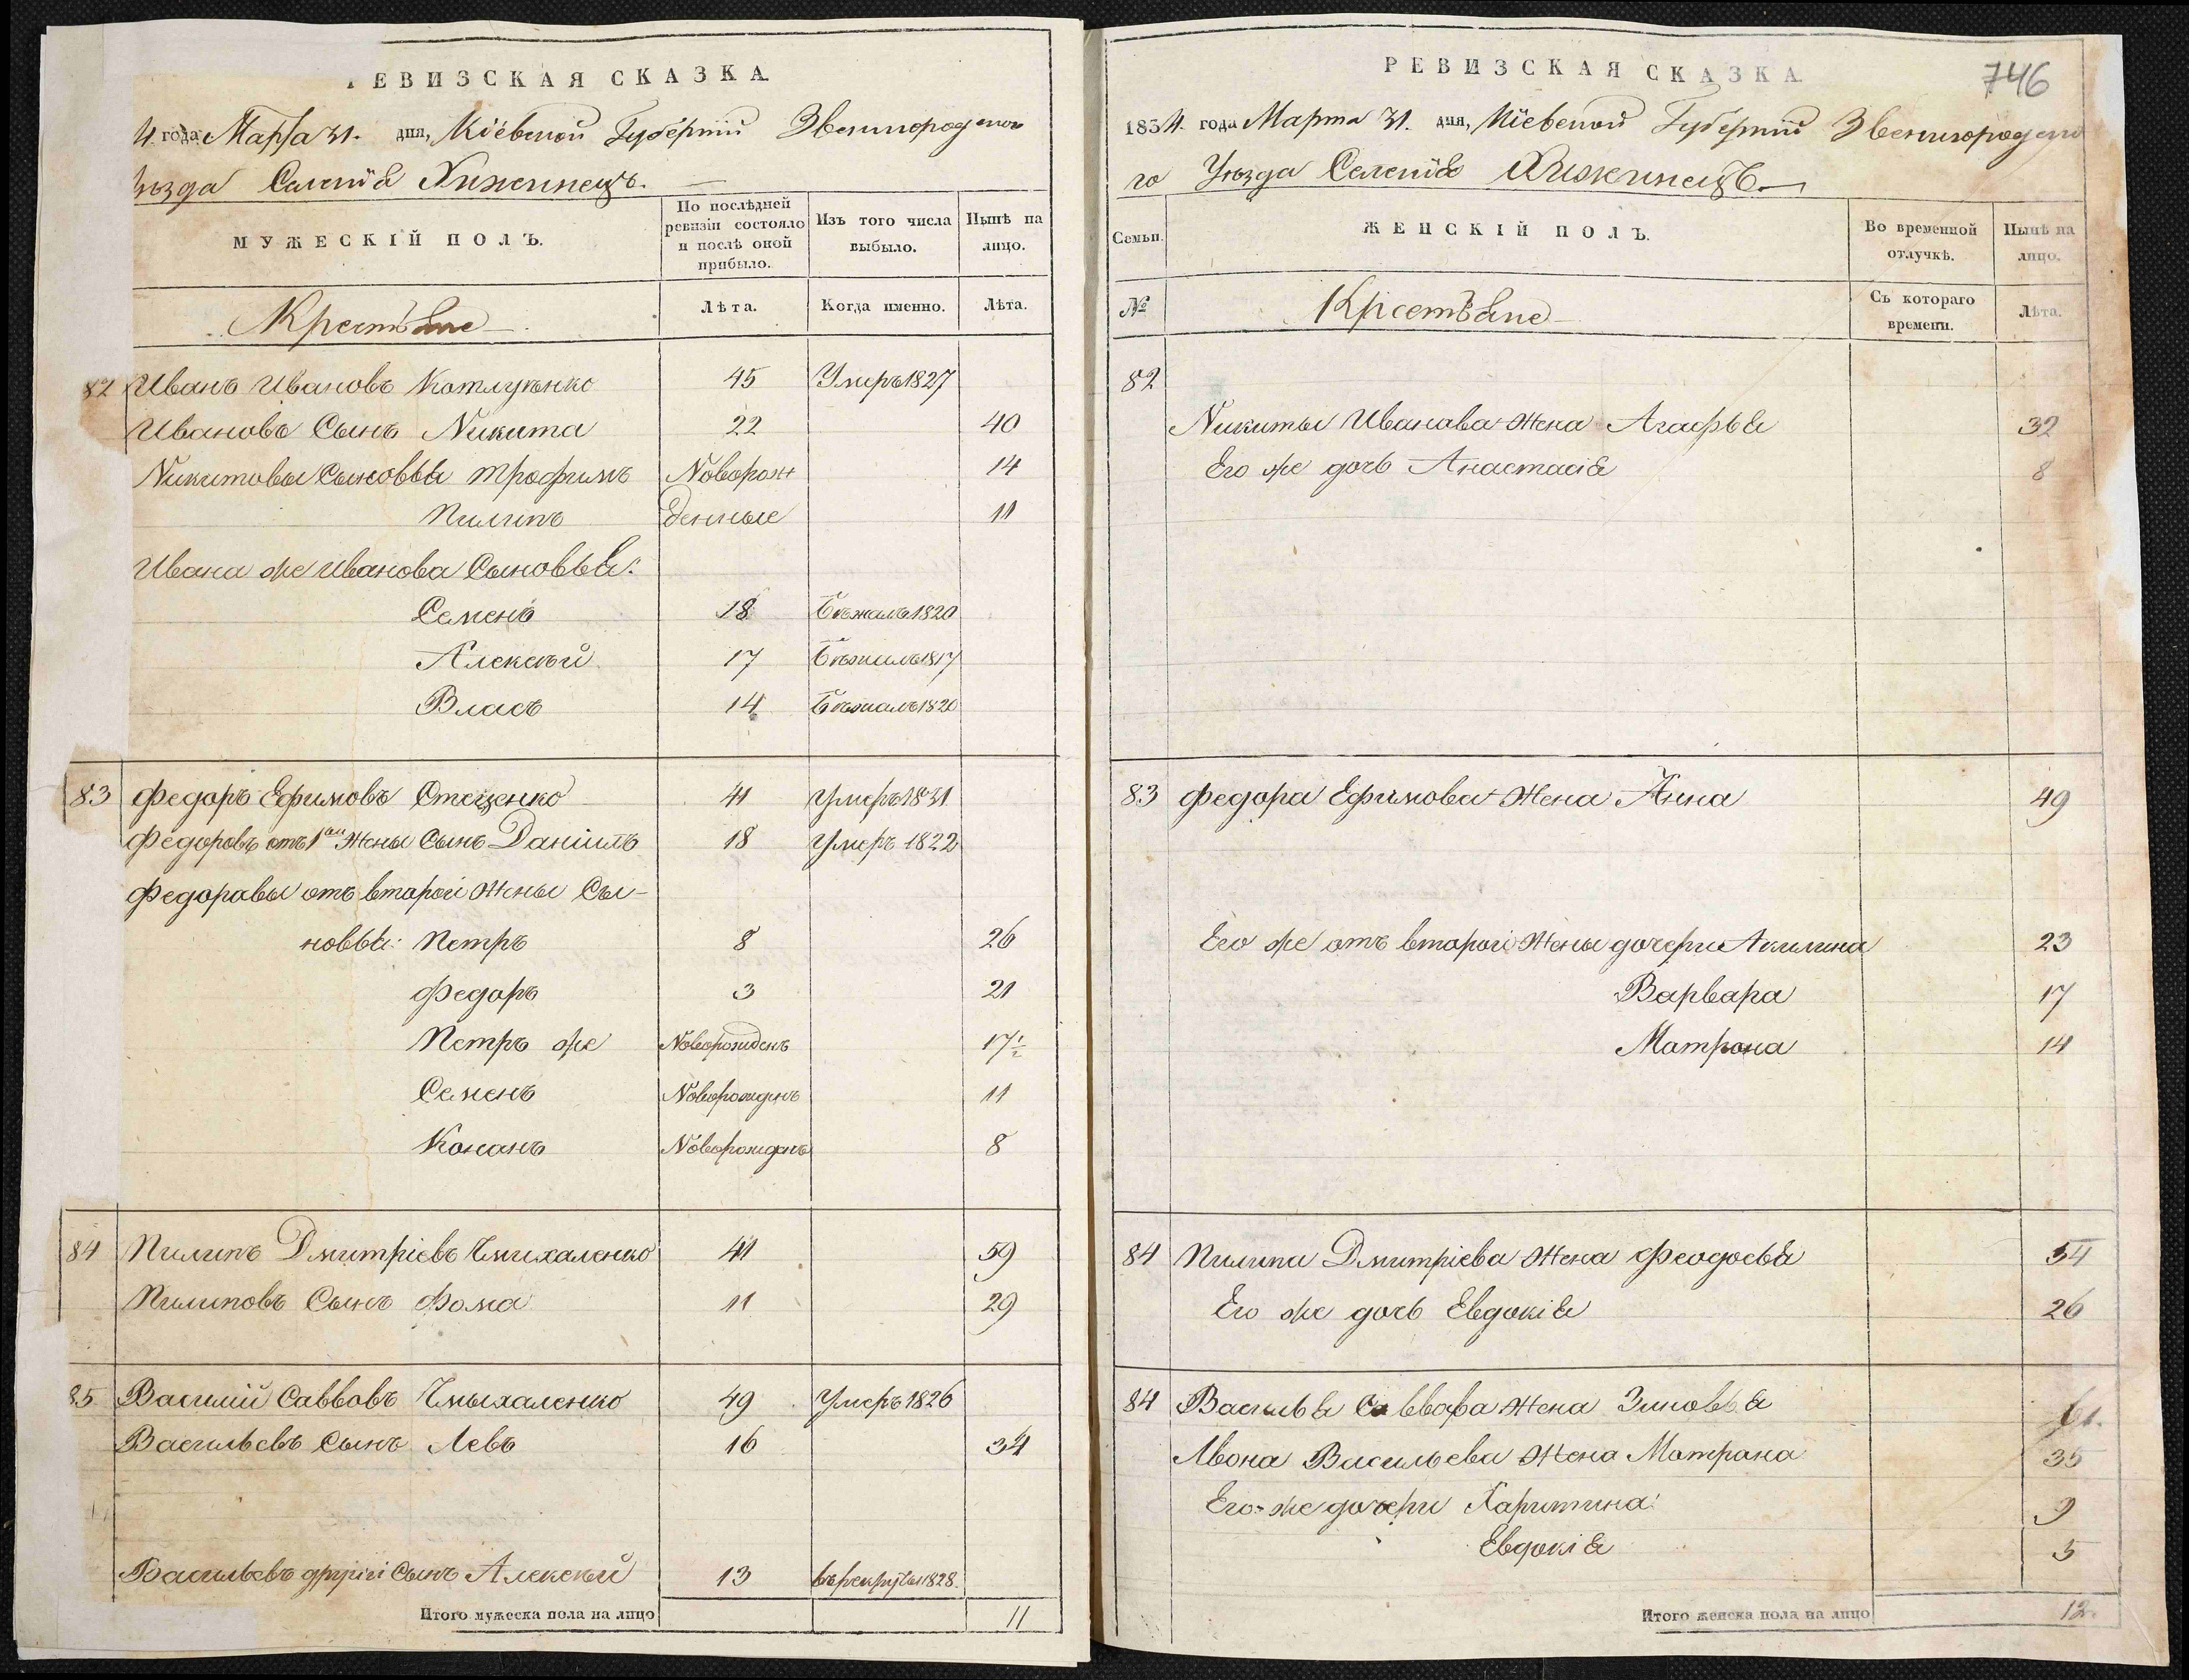 РЕВИЗСКАЯ СКАЗКА.
4 года Марта 31. дня, Кіевской Губерніи Звенигородског
уѣзда Селенія Хижинецъ.
МУЖЕСКІЙ ПОЛЪ.
По послѣдней ревизіи состояло и послѣ оной прибыло.
Изъ того числа выбыло.
Нынѣ на лицо.
Крестьяне
Лѣта.
Когда именно.
Лѣта.
82 Иванъ Ивановъ 45 Умеръ 1827
Ивановъ Сынъ Никита 22 40
Никитовы Сыновья Трофимъ Новорож 14
Пилипъ денные 11
Ивана же Иванова Сыновья:
Семенъ 18 Бѣжалъ 1820
Алексѣй 17 Бѣжалъ 1817
Власъ 14 Бѣжалъ 1820
83 Федоръ Ефимовъ Стеценко 41 Умеръ 1831
Федоровъ отъ 1ой Жены Сынъ Даніилъ 18 Умеръ 1822
Федоравы отъ второй Жены Сы-
новья: Петръ 8 26
Федоръ 3 21
Петръ же Новорожденъ 17½
Семенъ Новорожднъ 11
Конанъ Новорожденъ 8
84 Пилипъ Дмитріевъ Чмихаленко 41 59
Пилиповъ Сынъ Фома 11 29
85 Василій Саввовъ Чмыхаленко 49 Умеръ 1826
Васильевъ Сынъ Левъ 16 34
Васильевъ другій Сынъ Алексѣй 13 въ рекруты 1828.
Итого мужеска пола на лицо 11
746
РЕВИЗСКАЯ СКАЗКА.
1834. года Марта 31. дня, Кіевской Губерніи Звенигородско
го Уѣзда Селенія Хижинецъ
Семьи.
ЖЕНСКІЙ ПОЛЪ.
Во временной отлучкѣ.
Нынѣ на лицо.
№
Крестьяне
Съ котораго времени.
Лѣта.
82
Никиты Иванава Жена Агафья 32
Его же дочь Анастасія 8
83 Федора Ефимова Жена Анна 49
Его же отъ второй Жены дочери Акилина 23
Варвара 17
Матрона 14
84 Пилипа Дмитріева Жена Феодосья 54
Его же дочь Евдокія 26
84 Василья Саввова Жена Зиновья 61.
Лвона Васильева Жена Матрона 35
Его же дочери Харитина 9
Евдокія 5
Итого женска пола на лицо 12.